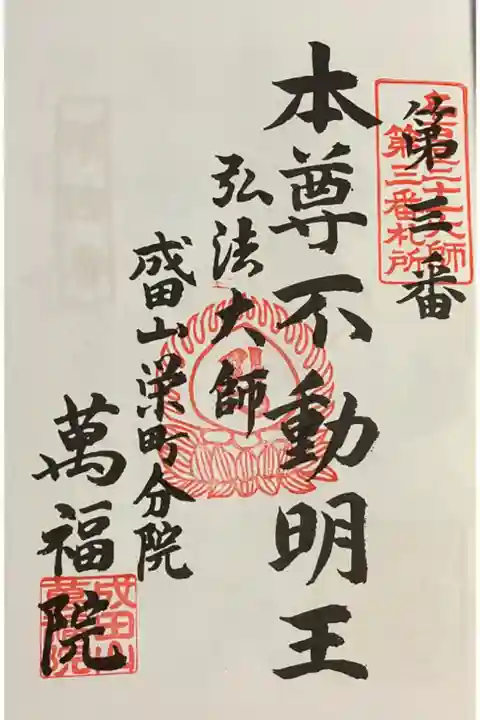 第三番
第三番札所
本尊不動明王
弘法大師
成田山栄町分院
萬福院
成田山
萬福院